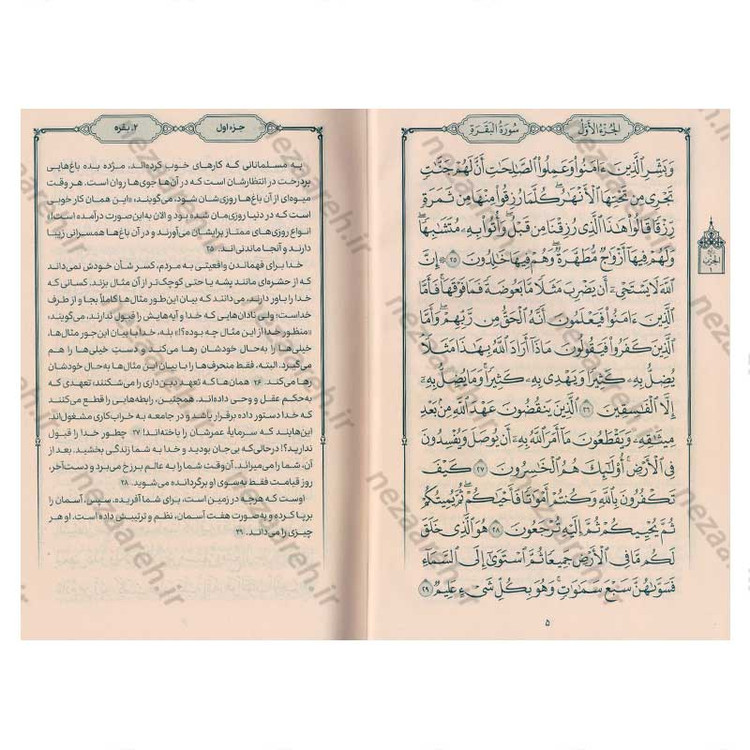 الجُزءُ الأَوَّلُ
سُورَةُ البَقَرَةِ
وَبَشِّرِ ٱلَّذِينَ ءَامَنُوا۟ وَعَمِلُوا۟ ٱلصَّٰلِحَٰتِ أَنَّ لَهُمْ جَنَّٰتٍ
تَجْرِى مِن تَحْتِهَا ٱلْأَنْهَٰرُ كُلَّمَا رُزِقُوا۟ مِنْهَا مِن ثَمَرَةٍ
رِّزْقًا قَالُوا۟ هَٰذَا ٱلَّذِى رُزِقْنَا مِن قَبْلُ وَأُتُوا۟ بِهِۦ مُتَشَٰبِهًا
وَلَهُمْ فِيهَآ أَزْوَٰجٌ مُّطَهَّرَةٌ وَهُمْ فِيهَا خَٰلِدُونَ ۲۵ إِنَّ
ٱللَّهَ لَا يَسْتَحْىِۦٓ أَن يَضْرِبَ مَثَلًا مَّا بَعُوضَةً فَمَا فَوْقَهَا فَأَمَّا
ٱلَّذِينَ ءَامَنُوا۟ فَيَعْلَمُونَ أَنَّهُ ٱلْحَقُّ مِن رَّبِّهِمْ وَأَمَّا
ٱلَّذِينَ كَفَرُوا۟ فَيَقُولُونَ مَاذَآ أَرَادَ ٱللَّهُ بِهَٰذَا مَثَلًا
يُضِلُّ بِهِۦ كَثِيرًا وَيَهْدِى بِهِۦ كَثِيرًا وَمَا يُضِلُّ بِهِۦٓ
إِلَّا ٱلْفَٰسِقِينَ ۲۶ ٱلَّذِينَ يَنقُضُونَ عَهْدَ ٱللَّهِ مِنۢ بَعْدِ
مِيثَٰقِهِۦ وَيَقْطَعُونَ مَآ أَمَرَ ٱللَّهُ بِهِۦٓ أَن يُوصَلَ وَيُفْسِدُونَ
فِى ٱلْأَرْضِ أُو۟لَٰٓئِكَ هُمُ ٱلْخَٰسِرُونَ ۲۷ كَيْفَ
تَكْفُرُونَ بِٱللَّهِ وَكُنتُمْ أَمْوَٰتًا فَأَحْيَٰكُمْ ثُمَّ يُمِيتُكُمْ
ثُمَّ يُحْيِيكُمْ ثُمَّ إِلَيْهِ تُرْجَعُونَ ۲۸ هُوَ ٱلَّذِى خَلَقَ
لَكُم مَّا فِى ٱلْأَرْضِ جَمِيعًا ثُمَّ ٱسْتَوَىٰٓ إِلَى ٱلسَّمَآءِ
فَسَوَّىٰهُنَّ سَبْعَ سَمَٰوَٰتٍ وَهُوَ بِكُلِّ شَىْءٍ عَلِيمٌ ۲۹
۵
جزء اول
۲. بقره
به مسلمانانی که کارهای خوب کرده‌اند، مژده بده باغ‌هایی
پردرخت در انتظارشان است که در آن‌ها جوی‌ها روان است. هر وقت
میوه‌ای از آن باغ‌ها روزی‌شان شود، می‌گویند: «این همان کار خوبی
است که در دنیا روزی‌مان شده بود و الان به این صورت درآمده است!»
انواع روزی‌های ممتاز برایشان می‌آورند و در آن باغ‌ها همسرانی زیبا
دارند و آنجا ماندنی‌اند. ۲۵
خدا برای فهماندن واقعیتی به مردم، کسر شأن خودش نمی‌داند
که از حشره‌ای مانند پشه یا حتی کوچک‌تر از آن مثال بزند. کسانی که
خدا را باور دارند، می‌دانند که بیان این‌طور مثال‌ها کاملاً بجا و از طرف
خداست؛ ولی نادان‌هایی که خدا و آیه‌هایش را قبول ندارند، می‌گویند:
«منظور خدا از این مثال چه بوده؟!» بله، خدا با بیان این‌جور مثال‌ها،
خیلی‌ها را به‌حال خودشان رها می‌کند و دست خیلی‌ها را هم
می‌گیرد. البته، فقط منحرف‌ها را با بیان این مثال‌ها به‌حال خودشان
رها می‌کند. ۲۶ همان‌ها که تعهد دین‌داری را می‌شکنند؛ تعهدی که
به‌حکم عقل و وحی داده‌اند. همچنین، رابطه‌هایی را قطع می‌کنند
که خدا دستور داده برقرار باشد و در جامعه به خراب‌کاری مشغول‌اند.
این‌هایند که سرمایهٔ عمرشان را باخته‌اند! ۲۷ چطور خدا را قبول
ندارید؟! درحالی‌که بی‌جان بودید و خدا به شما زندگی بخشید. بعد از
آن، شما را می‌میراند. آن‌وقت شما را به عالم برزخ می‌برد و دست‌آخر،
روز قیامت فقط به‌سوی او برگردانده می‌شوید. ۲۸
اوست که هرچه در زمین است، برای شما آفریده. سپس، آسمان را
برپا کرده و به‌صورت هفت آسمان، نظم و ترتیبش داده است. او هر
چیزی را می‌داند. ۲۹
nezaareh.ir